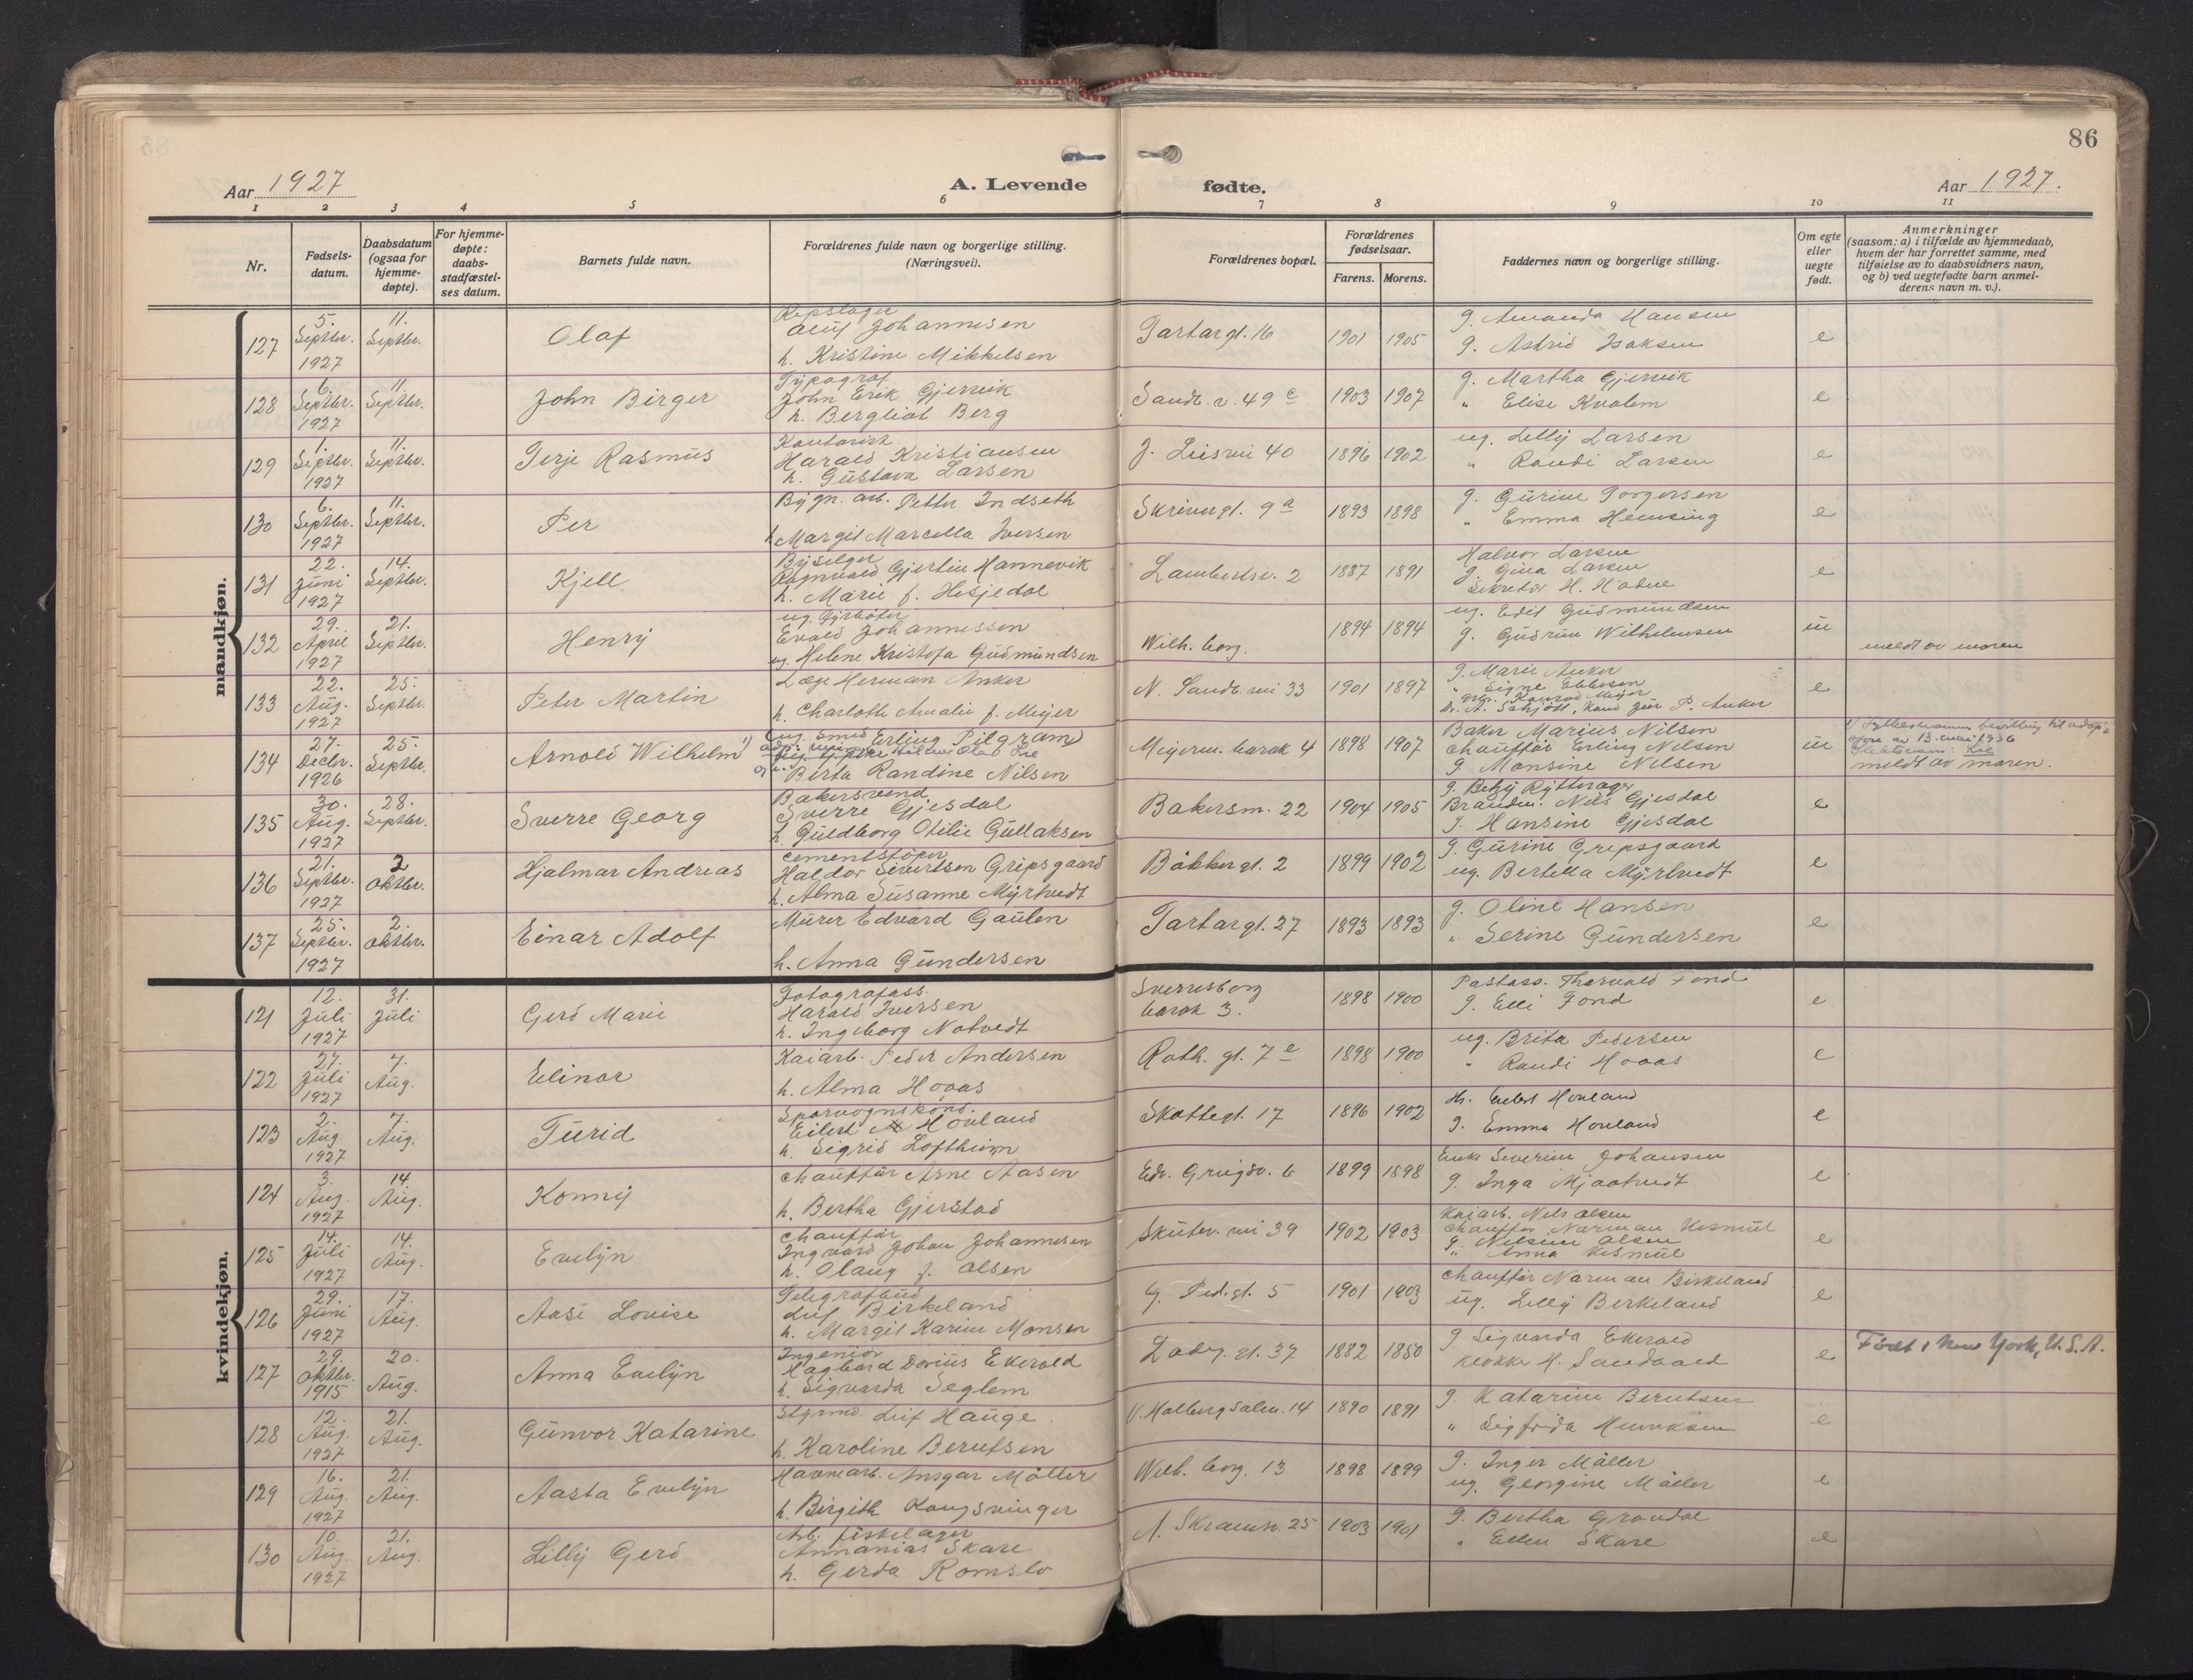 86
Aar 1927
A. Levende
fødte.
Aar 1927.
1 2 3 4 5 6 7 8 9 10 11
Nr.
Fødsels-
datum.
Daabsdatum
(ogsaa for
hjemme-
døpte).
For hjemme-
døpte:
daabs-
stadfæstel-
ses datum.
Barnets fulde navn.
Forældrenes fulde navn og borgerlige stilling.
(Næringsvei).
Forældrenes bopæl.
Forældrenes
fødselsaar.
Farens. Morens.
Faddernes navn og borgerlige stilling.
Om egte
eller
uegte
født.
Anmerkninger
(saasom: a) i tilfælde av hjemmedaab,
hvem der har forrettet samme, med
tilføielse av to daabsvidners navn,
og b) ved uegtefødte barn anmel-
derens navn m. v.).
mandkjøn.
127
5. Septbr. 1927
11. Septbr.
Olaf
Repslager
Oluf Johannesen
h. Kristine Mikkelsen
Tartargt. 16
1901 1905
g. Amanda Hansen
g. Astrid Isaksen
e
128
6. Septbr. 1927
11. Septbr.
John Birger
Typograf
John Erik Gjervik
h. Bergliot Berg
Sandv. v. 49 c
1903 1907
g. Martha Gjervik
" Elise Kvalem
e
129
1. Septbr. 1927
11. Septbr.
Terje Rasmus
Kontorist
Harald Kristiansen
h. Gustava Larsen
J. Liesvei 40
1896 1902
ug. Lelly Larsen
" Randi Larsen
e
130
6. Septbr. 1927
11. Septbr.
Per
Bygn. arb. Petter Indseth
h. Margit Marcella Iversen
Skrivergt. 9a
1893 1898
g. Gurine Torgersen
" Emma Hemsing
e
131
22. Juni 1927
14. Septbr.
Kjell
Byselger
Ragnvald Gjertin Hannevik
h. Marie f. Hesjedal
Lambertsv. 2
1887 1891
Halvor Larsen
g. Gina Larsen
Sekretær H. Hodne
e
132
29. April 1927
21. Septbr.
Henry
ug. Fyrbøter
Evald Johannessen
ug. Helene Kristofa Gudmundsen
Wilh. borg.
1894 1894
ug. Edit Gudmundsen
g. Gudrun Wilhelmsen
u
meldt av moren
133
22. Aug. 1927
25. Septbr.
Peter Martin
Læge Herman Anker
h. Charlotte Amalie f. Meyer
N. Sandv. vei 33
1901 1897
g. Marie Anker
" Signe Ebbesen
Konrad Meyer
Dr. A. Schjött, Kand jur P. Anker
e
134
27. Decbr. 1926
25. Septbr.
Arnold Wilhelm 1)
(ug. Smed Erling Pilgram)
Birta Randine Nilsen
Meyerm. barak 4
1898 1907
Baker Marius Nilsen
Chauffør Erling Nilsen
g. Monsine Nilsen
u
1) Fylkesmannens bevilling til adop-
sjon av 13. mai 1936
Slektsnavn: Lie
meldt av moren.
135
30. Aug. 1927
28. Septbr.
Sverre Georg
Bakersvend
Sverre Gjesdal
h. Guldborg Otilie Gullaksen
Bakersm. 22
1904 1905
g. Betzy Rytterager
Brandm. Nils Gjesdal
g. Hansine Gjesdal
e
136
21. Septbr. 1927
2 Oktbr.
Hjalmar Andreas
Cementstøper
Haldor Sivertsen Gripsgaard
h. Alma Susanne Myrtvedt
Båkkergt. 2
1899 1902
g. Gurine Gripsgaard
ug. Bertella Myrtvedt
e
137
25. Septbr. 1927
2. Oktbr.
Einar Adolf
Murer Edvard Gaulen
h. Anna Gundersen
Tartargt. 27
1893 1893
g. Oline Hansen
" Serine Gundersen
e
kvindekjøn.
121
12. Juli 1927
31. Juli
Gerd Marie
Fotografass.
Harald Iversen
h. Ingeborg Notvedt
Sverresborg
barak 3.
1898 1900
Postass. Thorvald Fond
g. Elli Fond
e
122
27. Juli 1927
7. Aug.
Elinor
Kaiarb. Peder Andersen
h. Alma Hovas
Roth. gt. 7 e
1898 1900
ug. Brita Pedersen
" Randi Hovas
e
123
2. Aug. 1927
7. Aug.
Turid
Sporvognskond.
Eilert Hovland
h. Sigrid Loftheim
Skottegt. 17
1896 1902
Hr. Eilert Hovland
g. Emma Hovland
e
124
3. Aug. 1927
14 Aug.
Konny
Chauffør Arne Aasen
h. Bertha Gjerstad
Edv. Griegsv. 6
1899 1898
Enke Severine Johansen
g. Inga Mjaatvedt
e
125
14. Juli 1927
14. Aug.
Evelyn
Chauffør
Ingvard Johan Johannesen
h. Olaug f. Olsen
Skutev. vei 39
1902 1903
Kaiarb. Nils Olsen
Chauffør Norman Kismul
g. Nilsine Olsen
" Anna Kismul
e
126
29. Juni 1927
17. Aug.
Aase Louise
Telegrafbud
Leif Birkeland
h. Margit Karine Monsen
G. Ped. gt. 5
1901 1903
Chauffør Norman Birkeland
ug. Lelly Birkeland
e
127
29. Oktbr. 1915
20. Aug.
Anna Evelyn
Ingeniør
Hagbard Dorius Ekerold
h. Sigvarda Seglem
Ladeg. gt. 37
1882 1880
g. Sigvarda Ekerold
Klokker H. Sandaard
e
Født i New York, U.S.A.
128
12. Aug. 1927
21. Aug.
Gunvor Katarine
Leif Hauge
h. Karoline Berntsen
V. Holbergsalm. 14
1890 1891
g. Katarine Berntsen
" Sigfrida Henriksen
e
129
16. Aug. 1927
21. Aug.
Aasta Evelyn
Havnearb. Ansgar Möller
h. Birgith Kongsvinger
Wilh. borg. 13
1898 1899
g. Inger Möller
ug. Georgine Möller
e
130
10. Aug. 1927
21. Aug.
Lilly Gerd
Arb. fiskelager
Annanias Skare
h. Gerda Romslo
A. Skramsv. 25
1903 1901
g. Bertha Grøndal
" Ellen Skare
e